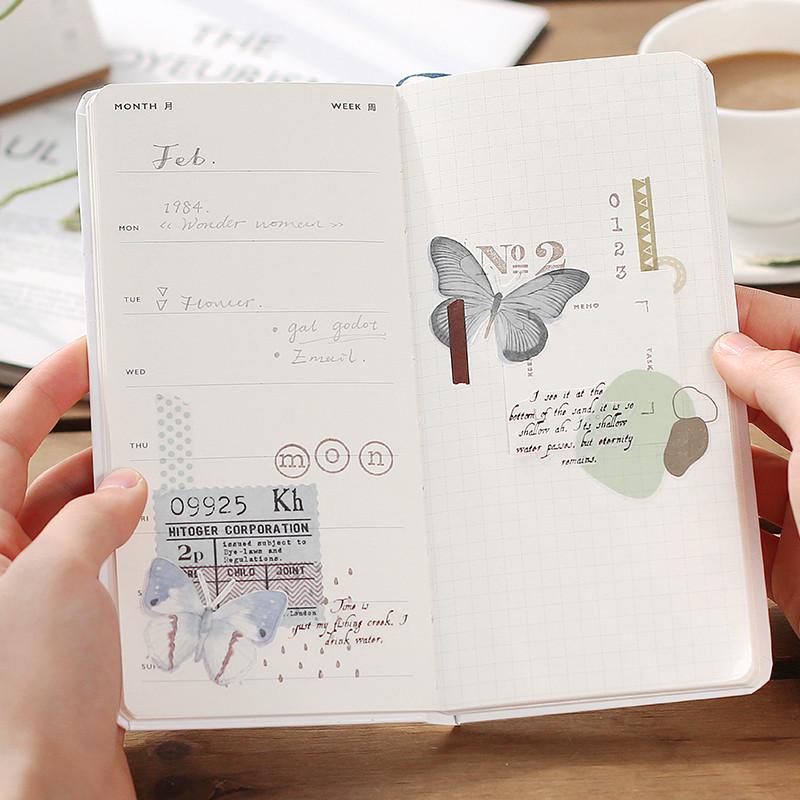 THE
MONTH 月
WEEK 周
Feb.
1984.
MON
« Wonder women »
TUE
• gal gadot
WED
THU
m o n
09925 Kh
HITOGER CORPORATION
2p
issued subject to
Bye-laws and
Regulations.
CHILD JOINT
London
Time is
just my fishing creek. I
drink water,
SU
0
1
2
3
No 2
MEMO
TASK
I see it at the
bottom of the sand, it is so
shallow ah. Its shallow
water passes, but eternity
remains.